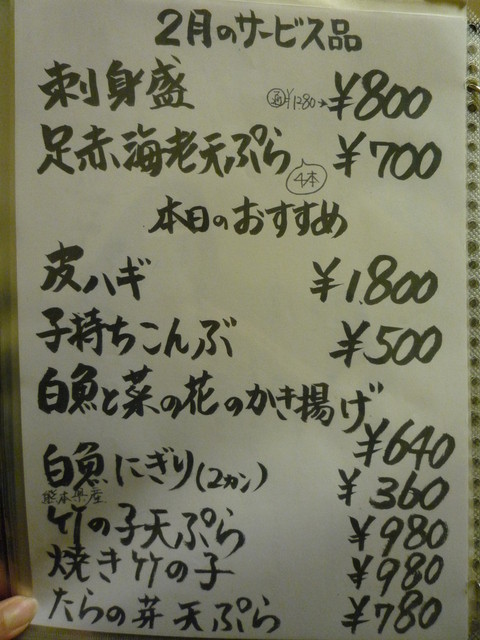 2月のサービス品
刺身盛 通¥1280→ ¥800
足赤海老天ぷら 4本 ¥700
本日のおすすめ
皮ハギ ¥1.800
子持ちこんぶ ¥500
白魚と菜の花のかき揚げ
¥640
白魚にぎり(2カン) ¥360
熊本県産
竹の子天ぷら ¥980
焼き竹の子 ¥980
たらの芽天ぷら ¥780